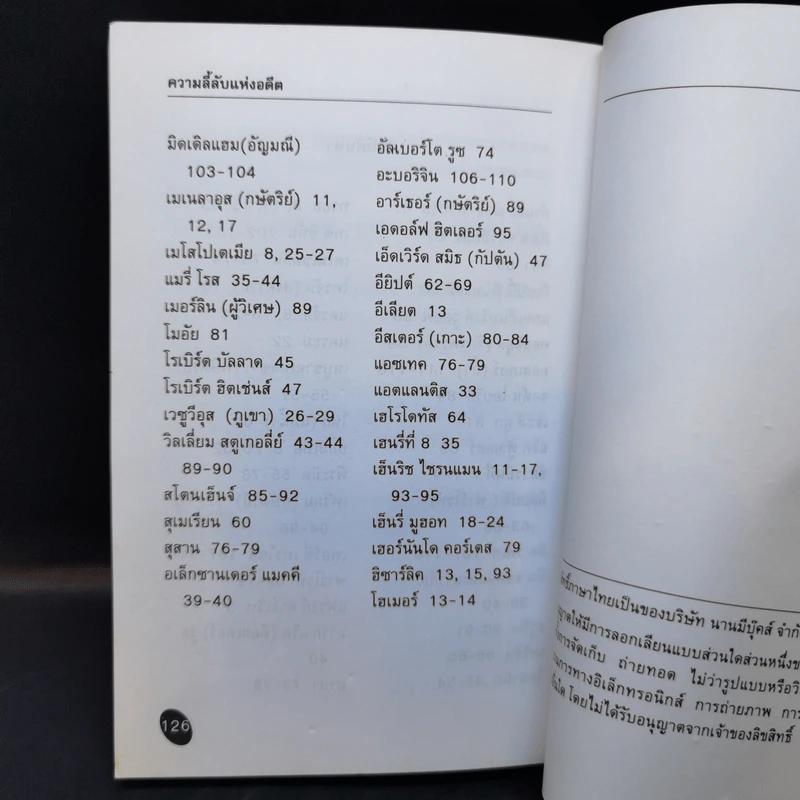 ความลี้ลับแห่งอดีต
มิดเดิลแฮม(อัญมณี)
103-104
เมเนลาอุส (กษัตริย์) 11,
12, 17
เมโสโปเตเมีย 8, 25-27
แมรี่ โรส 35-44
เมอร์ลิน (ผู้วิเศษ) 89
โมอัย 81
โรเบิร์ต บัลลาด 45
โรเบิร์ต ฮิตเช่นส์ 47
เวซูวีอุส (ภูเขา) 26-29
วิลเลี่ยม สตูเกอลี่ย์ 43-44
89-90
สโตนเฮ็นจ์ 85-92
สุเมเรียน 60
สุสาน 76-79
อเล็กซานเดอร์ แมคคี
39-40
อัลเบอร์โต รูซ 74
อะบอริจิน 106-110
อาร์เธอร์ (กษัตริย์) 89
เอดอล์ฟ ฮิตเลอร์ 95
เอ็ดเวิร์ด สมิธ (กัปตัน) 47
อียิปต์ 62-69
อีเลียต 13
อีสเตอร์ (เกาะ) 80-84
แอซเทค 76-79
แอตแลนติส 33
เฮโรโดทัส 64
เฮนรี่ที่ 8 35
เฮ็นริช ไชรนแมน 11-17,
93-95
เฮ็นรี่ มูฮอท 18-24
เฮอร์นันโด คอร์เตส 79
ฮิซาร์ลิค 13, 15, 93
โฮเมอร์ 13-14
126
ภาษาไทยเป็นของบริษัท นานมีบุ๊คส์
ให้มีการลอกเลียนแบบส่วนใดส่วนหนึ่ง
การจัดเก็บ ถ่ายทอด ไม่ว่ารูปแบบหรือ
การทางอิเล็กทรอนิกส์ การถ่ายภาพ การ
ใด โดยไม่ได้รับอนุญาตจากเจ้าของลิขสิทธิ์